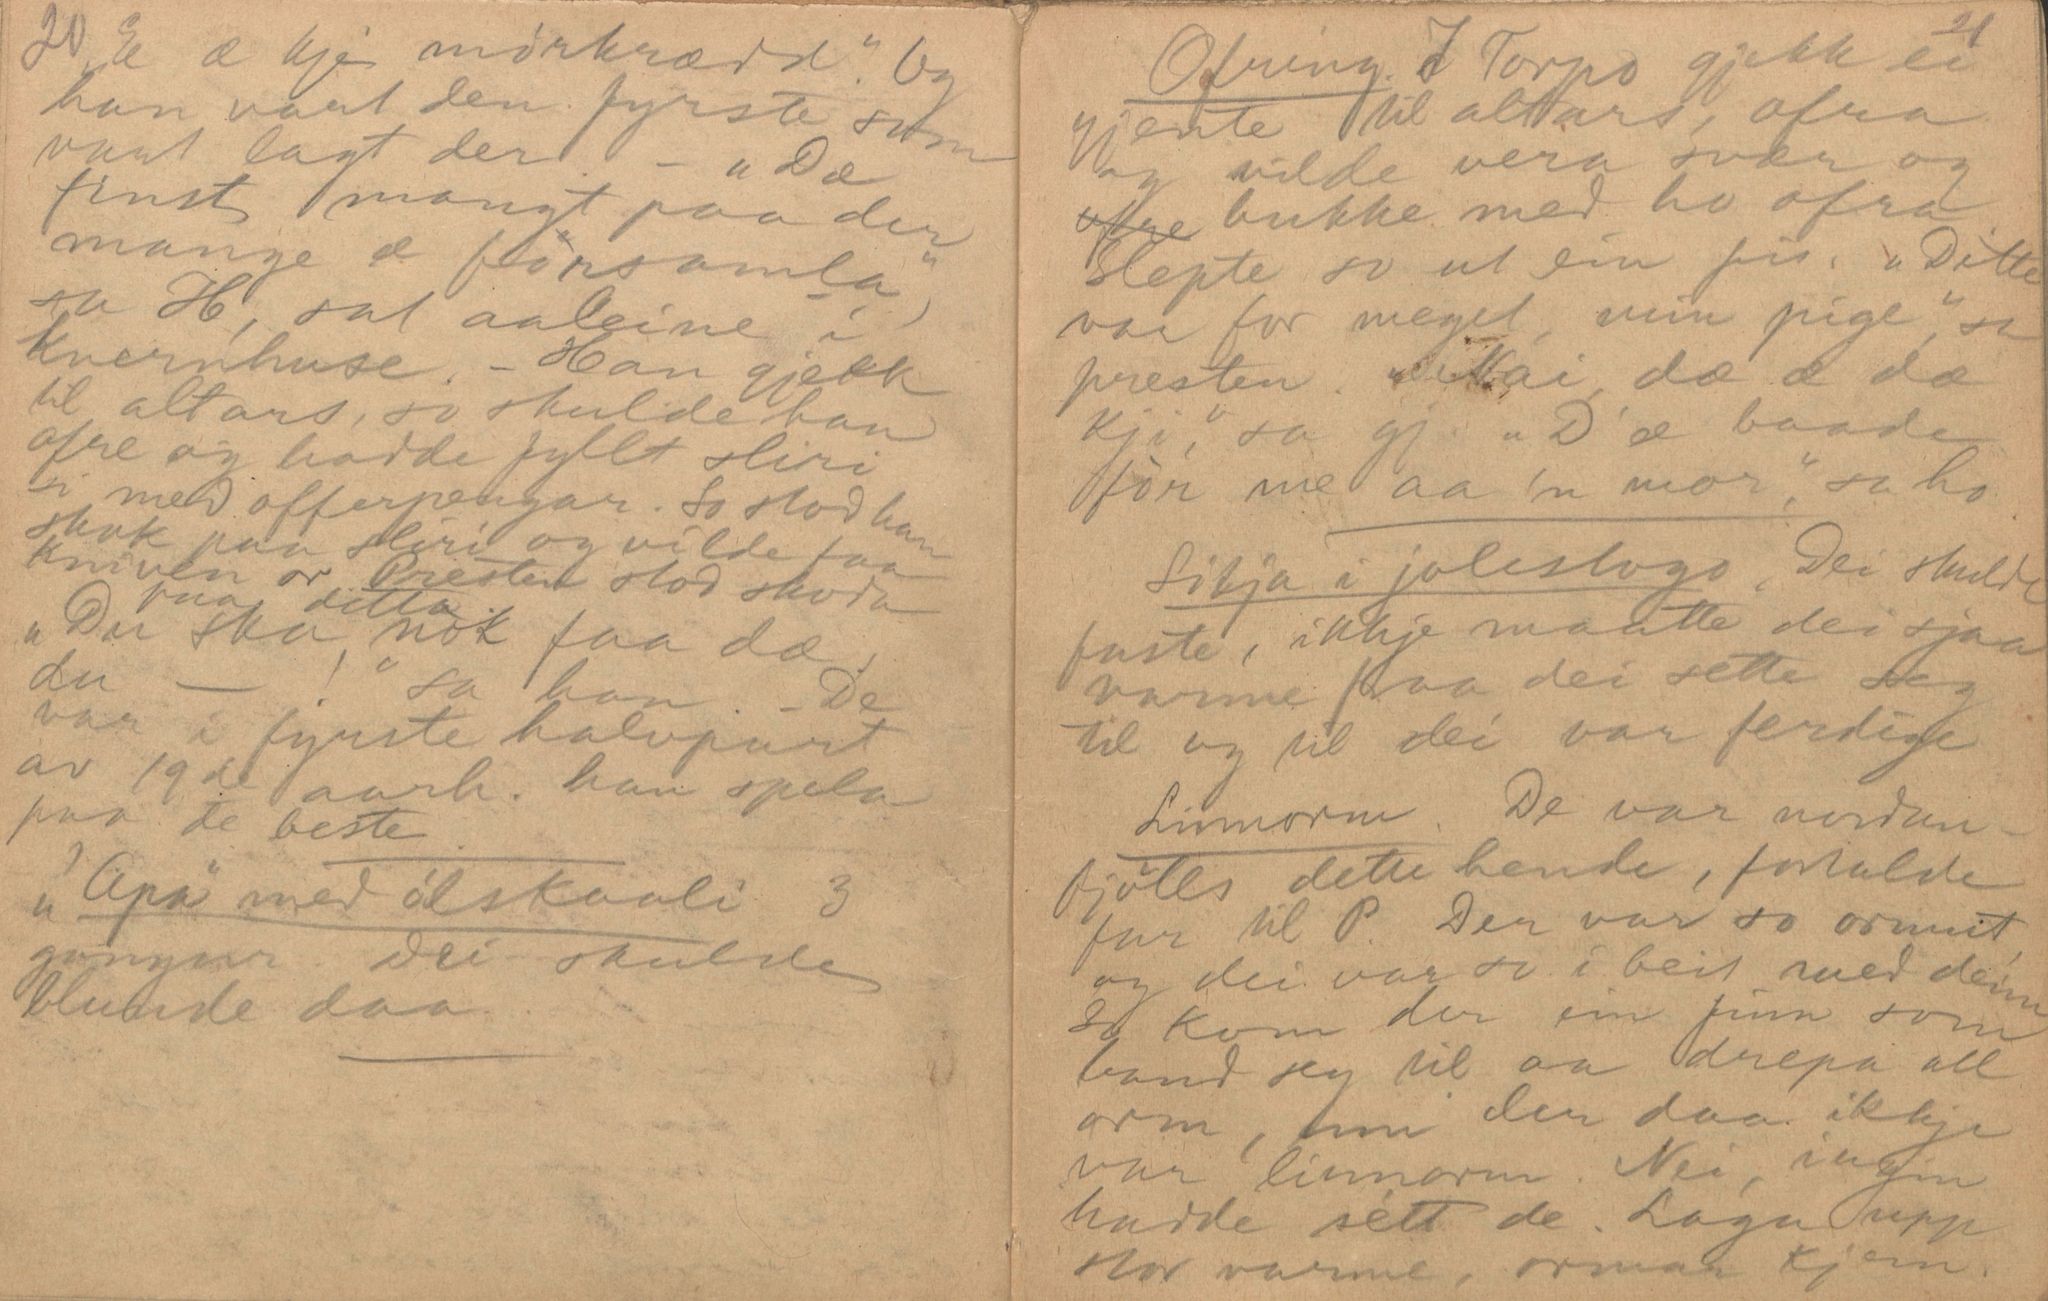 20
"E æ kje mörkrædd." Og
han vart den fyrste som
vart lagt der. - "Dæ
finst mangt paa der
mange æ församla",
sa H, sat aaleine i
kvernhuse. - Han gjekk
til altars, so skulde han
ofre og hadde fyllt sliri
si med offerpengar. So stod han
skok paa sliri og vilde faa
kniven or Presten stod skoda
paa ditta.
"Du ska nok faa dæ,
du — !" sa han. - De
var i fyrste halvpart
av 19de aarh. han spela
paa de beste
"Apa" med ölskaali 3
gongur. Dei skulde
blunde daa
21
Ofring. I Torpo gjekk ei
gjente til altars, ofra
og vilde vera svær og
ofre bukke med ho ofra
Slepte so ut ein fis. "Ditte
var for meget, min pige," sa
presten. "Nai, dæ æ dæ
kji," sa gj. "D'æ baade
för me aa 'n mor," sa ho.
Sitja i jolestogo. Dei skulde
faste, ikkje maatte dei sjaa
varme fraa dei sette seg
til og til dei var ferdige
Linnorm. De var nordan-
fjölls dette hende, fortalde
far til P. Der var so ormut,
og dei var so i beit med deim
So kom der ein finn som
baud seg til aa drepa all
orm, um der daa ikkje
var linnorm. Nei, ingin
hadde sétt de. Laga upp
stor varme, orman kjem.